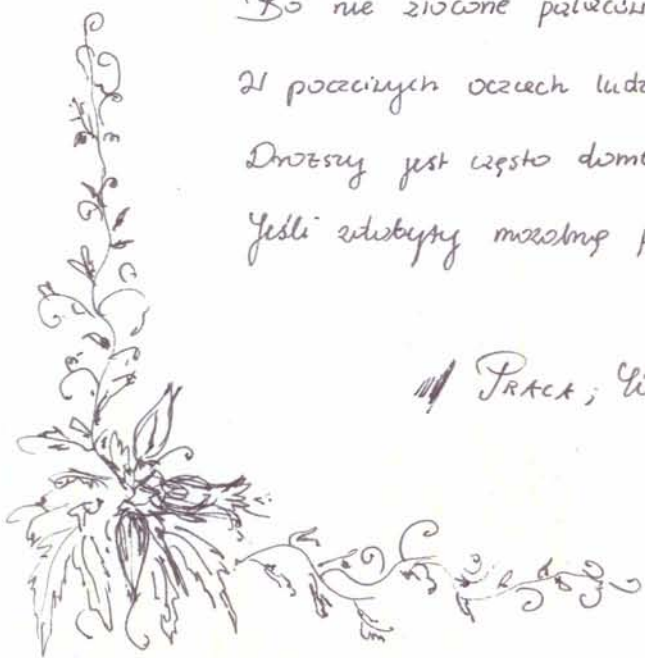 Bo nie złocone
W poczciwych oczach
Droższy jest często
Jeśli zdobyty mozolną
PRACA;